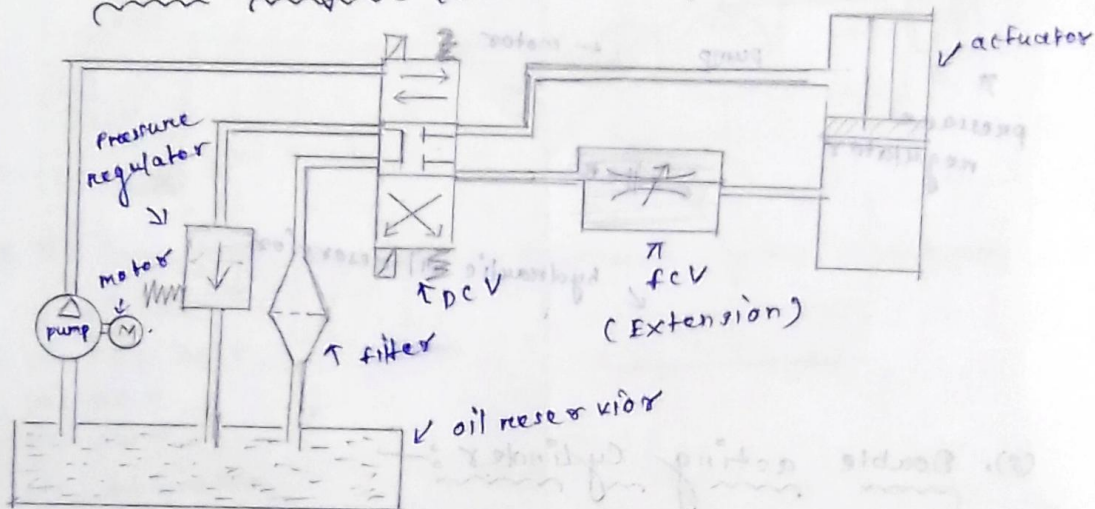 actuator
Pressure
regulator
motor
pump
M
DCV
fCV
(Extension)
filter
oil reservior